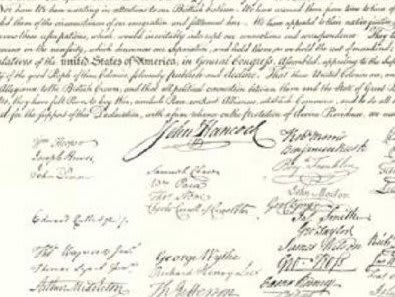 have We been wanting in attentions to our Brittish brethren. We have warned them from time to time of
them of the circumstances of our emigration and settlement here. We have appealed to their native justice
these usurpations, which would inevitably interrupt our connections and correspondence. They
in the necessity, which denounces our Separation, and hold them, as we hold the rest of mankind,
of the united States of America, in General Congress, Assembled, appealing to the
of the good People of these Colonies, solemnly publish and declare, That these United Colonies are,
Allegiance to the British Crown, and that all political connection between them and the State of Great
they have full Power to levy War, conclude Peace, contract Alliances, establish Commerce, and to do all
for the support of this Declaration, with a firm reliance on the Protection of divine Providence, we
John Hancock
Wm Hooper
Joseph Hewes
John Penn
Edward Rutledge
Thos Heyward Junr
Thomas Lynch Junr
Arthur Middleton
Samuel Chase
Wm Paca
Thos Stone
Charles Carroll of Carrollton
George Wythe
Richard Henry Lee
Th Jefferson
Robt Morris
Benjamin Rush
Benj Franklin
John Morton
Geo Clymer
Jas Smith
Geo Taylor
James Wilson
Geo Ross
Caesar Rodney